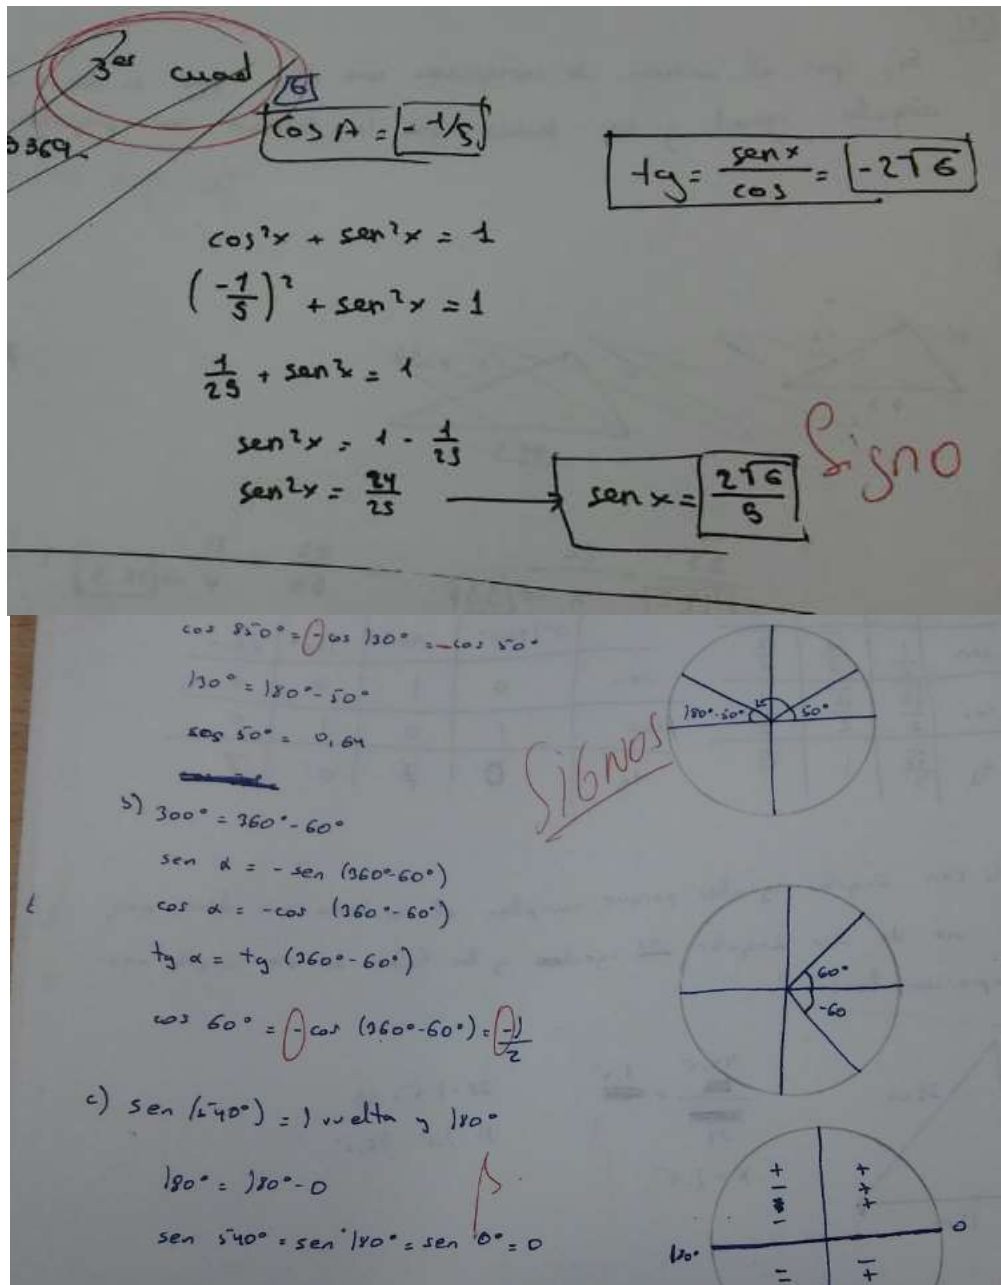 3er cuad
6
cos A = -1/5
369.
tg = senx/cos = -2√6
cos²x + sen²x = 1
(-1/5)² + sen²x = 1
1/25 + sen²x = 1
sen²x = 1 - 1/25
sen²x = 24/25 → sen x = 2√6/5
Signo
cos 850° = -cos 130° = -cos 50°
130° = 180° - 50°
cos 50° = 0,64
180°-50°
50°
SIGNOS
b) 300° = 360° - 60°
sen α = - sen (360°-60°)
cos α = -cos (360°-60°)
tg α = tg (360°-60°)
cos 60° = -cos (360°-60°) = -1/2
60°
-60
c) sen (540°) = 1 vuelta y 180°
180° = 180° - 0
sen 540° = sen 180° = sen 0° = 0
+ +
- +
- +
0
180°
- +